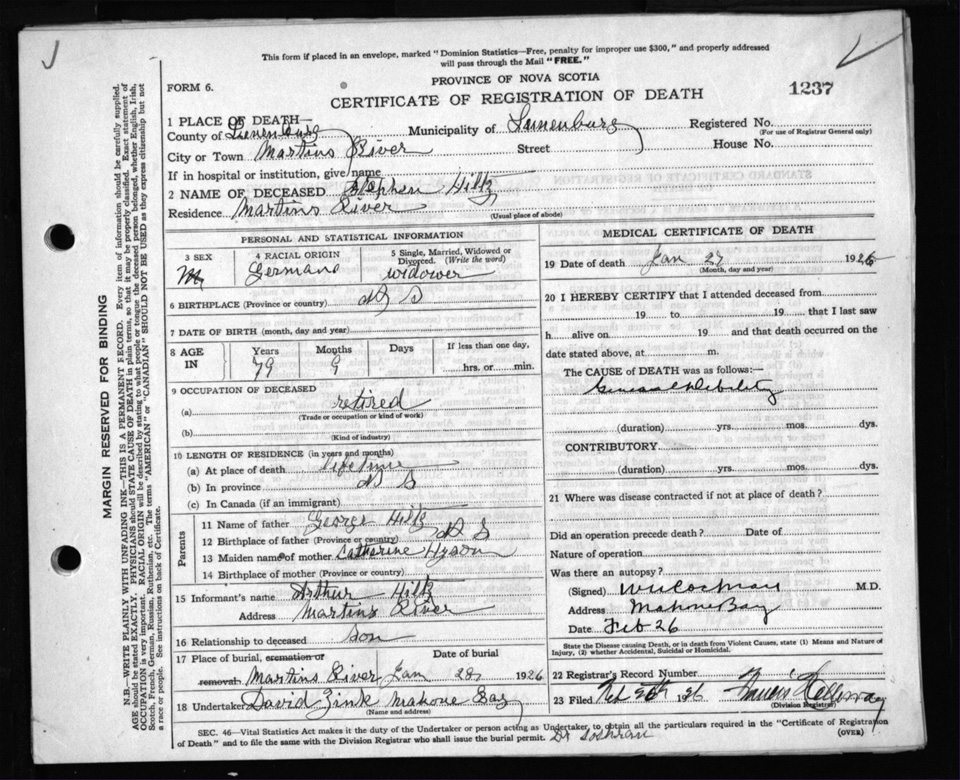 This form if placed in an envelope, marked "Dominion Statistics—Free, penalty for improper use $300," and properly addressed
will pass through the Mail "FREE."
PROVINCE OF NOVA SCOTIA
FORM 6.
CERTIFICATE OF REGISTRATION OF DEATH
1237
1 PLACE OF DEATH—
County of Lunenburg Municipality of Lunenburg Registered No.
(For use of Registrar General only)
City or Town Martins River Street House No.
If in hospital or institution, give name
2 NAME OF DECEASED Stephen Hiltz
Residence Martins River
(Usual place of abode)
PERSONAL AND STATISTICAL INFORMATION
3 SEX
M
4 RACIAL ORIGIN
German
5 Single, Married, Widowed or
Divorced. (Write the word)
widower
6 BIRTHPLACE (Province or country) N S
7 DATE OF BIRTH (month, day and year)
8 AGE
IN
Years Months Days If less than one day,
79 9 hrs. or min.
9 OCCUPATION OF DECEASED
(a) retired
(Trade or occupation or kind of work)
(b)
(Kind of industry)
10 LENGTH OF RESIDENCE (in years and months)
(a) At place of death life time
(b) In province N S
(c) In Canada (if an immigrant)
Parents
11 Name of father George Hiltz
12 Birthplace of father (Province or country) N S
13 Maiden name of mother Catharine Hyson
14 Birthplace of mother (Province or country)
15 Informant's name Arthur Hiltz
Address Martins River
16 Relationship to deceased son
17 Place of burial, cremation or
removal Date of burial
Martins River Jan 28 1926
18 Undertaker David Zink Mahone Bay
(Name and address)
MEDICAL CERTIFICATE OF DEATH
19 Date of death Jan 27 1926
(Month, day and year)
20 I HEREBY CERTIFY that I attended deceased from
19 to 19 that I last saw
h alive on 19 and that death occurred on the
date stated above, at m.
The CAUSE of DEATH was as follows:
General Debility
(duration) yrs. mos. dys.
CONTRIBUTORY
(duration) yrs. mos. dys.
21 Where was disease contracted if not at place of death?
Did an operation precede death? Date of
Nature of operation
Was there an autopsy?
(Signed) W Cochran M.D.
Address Mahone Bay
Date Feb 26
State the Disease causing Death, or in death from Violent Causes, state (1) Means and Nature of
Injury, (2) whether Accidental, Suicidal or Homicidal.
22 Registrar's Record Number
23 Filed Feb 1926
(Division Registrar)
SEC. 46—Vital Statistics Act makes it the duty of the Undertaker or person acting as Undertaker, to obtain all the particulars required in the "Certificate of Registration
of Death" and to file the same with the Division Registrar who shall issue the burial permit.
(OVER)
Dr Cochran
MARGIN RESERVED FOR BINDING
N.B.—WRITE PLAINLY WITH UNFADING INK—THIS IS A PERMANENT RECORD. Every item of information should be carefully supplied.
AGE should be stated EXACTLY. PHYSICIANS should STATE CAUSE OF DEATH in plain terms, so that it may be properly classified. Exact statement of
OCCUPATION is very important. RACIAL ORIGIN will be described by stating to what people or tongue the deceased person belonged, whether English, Irish,
Scotch, French, German, Russian, Ruthenian, etc. The terms "AMERICAN" or "CANADIAN" SHOULD NOT BE USED as they express citizenship but not
a race or people. See instructions on back of Certificate.